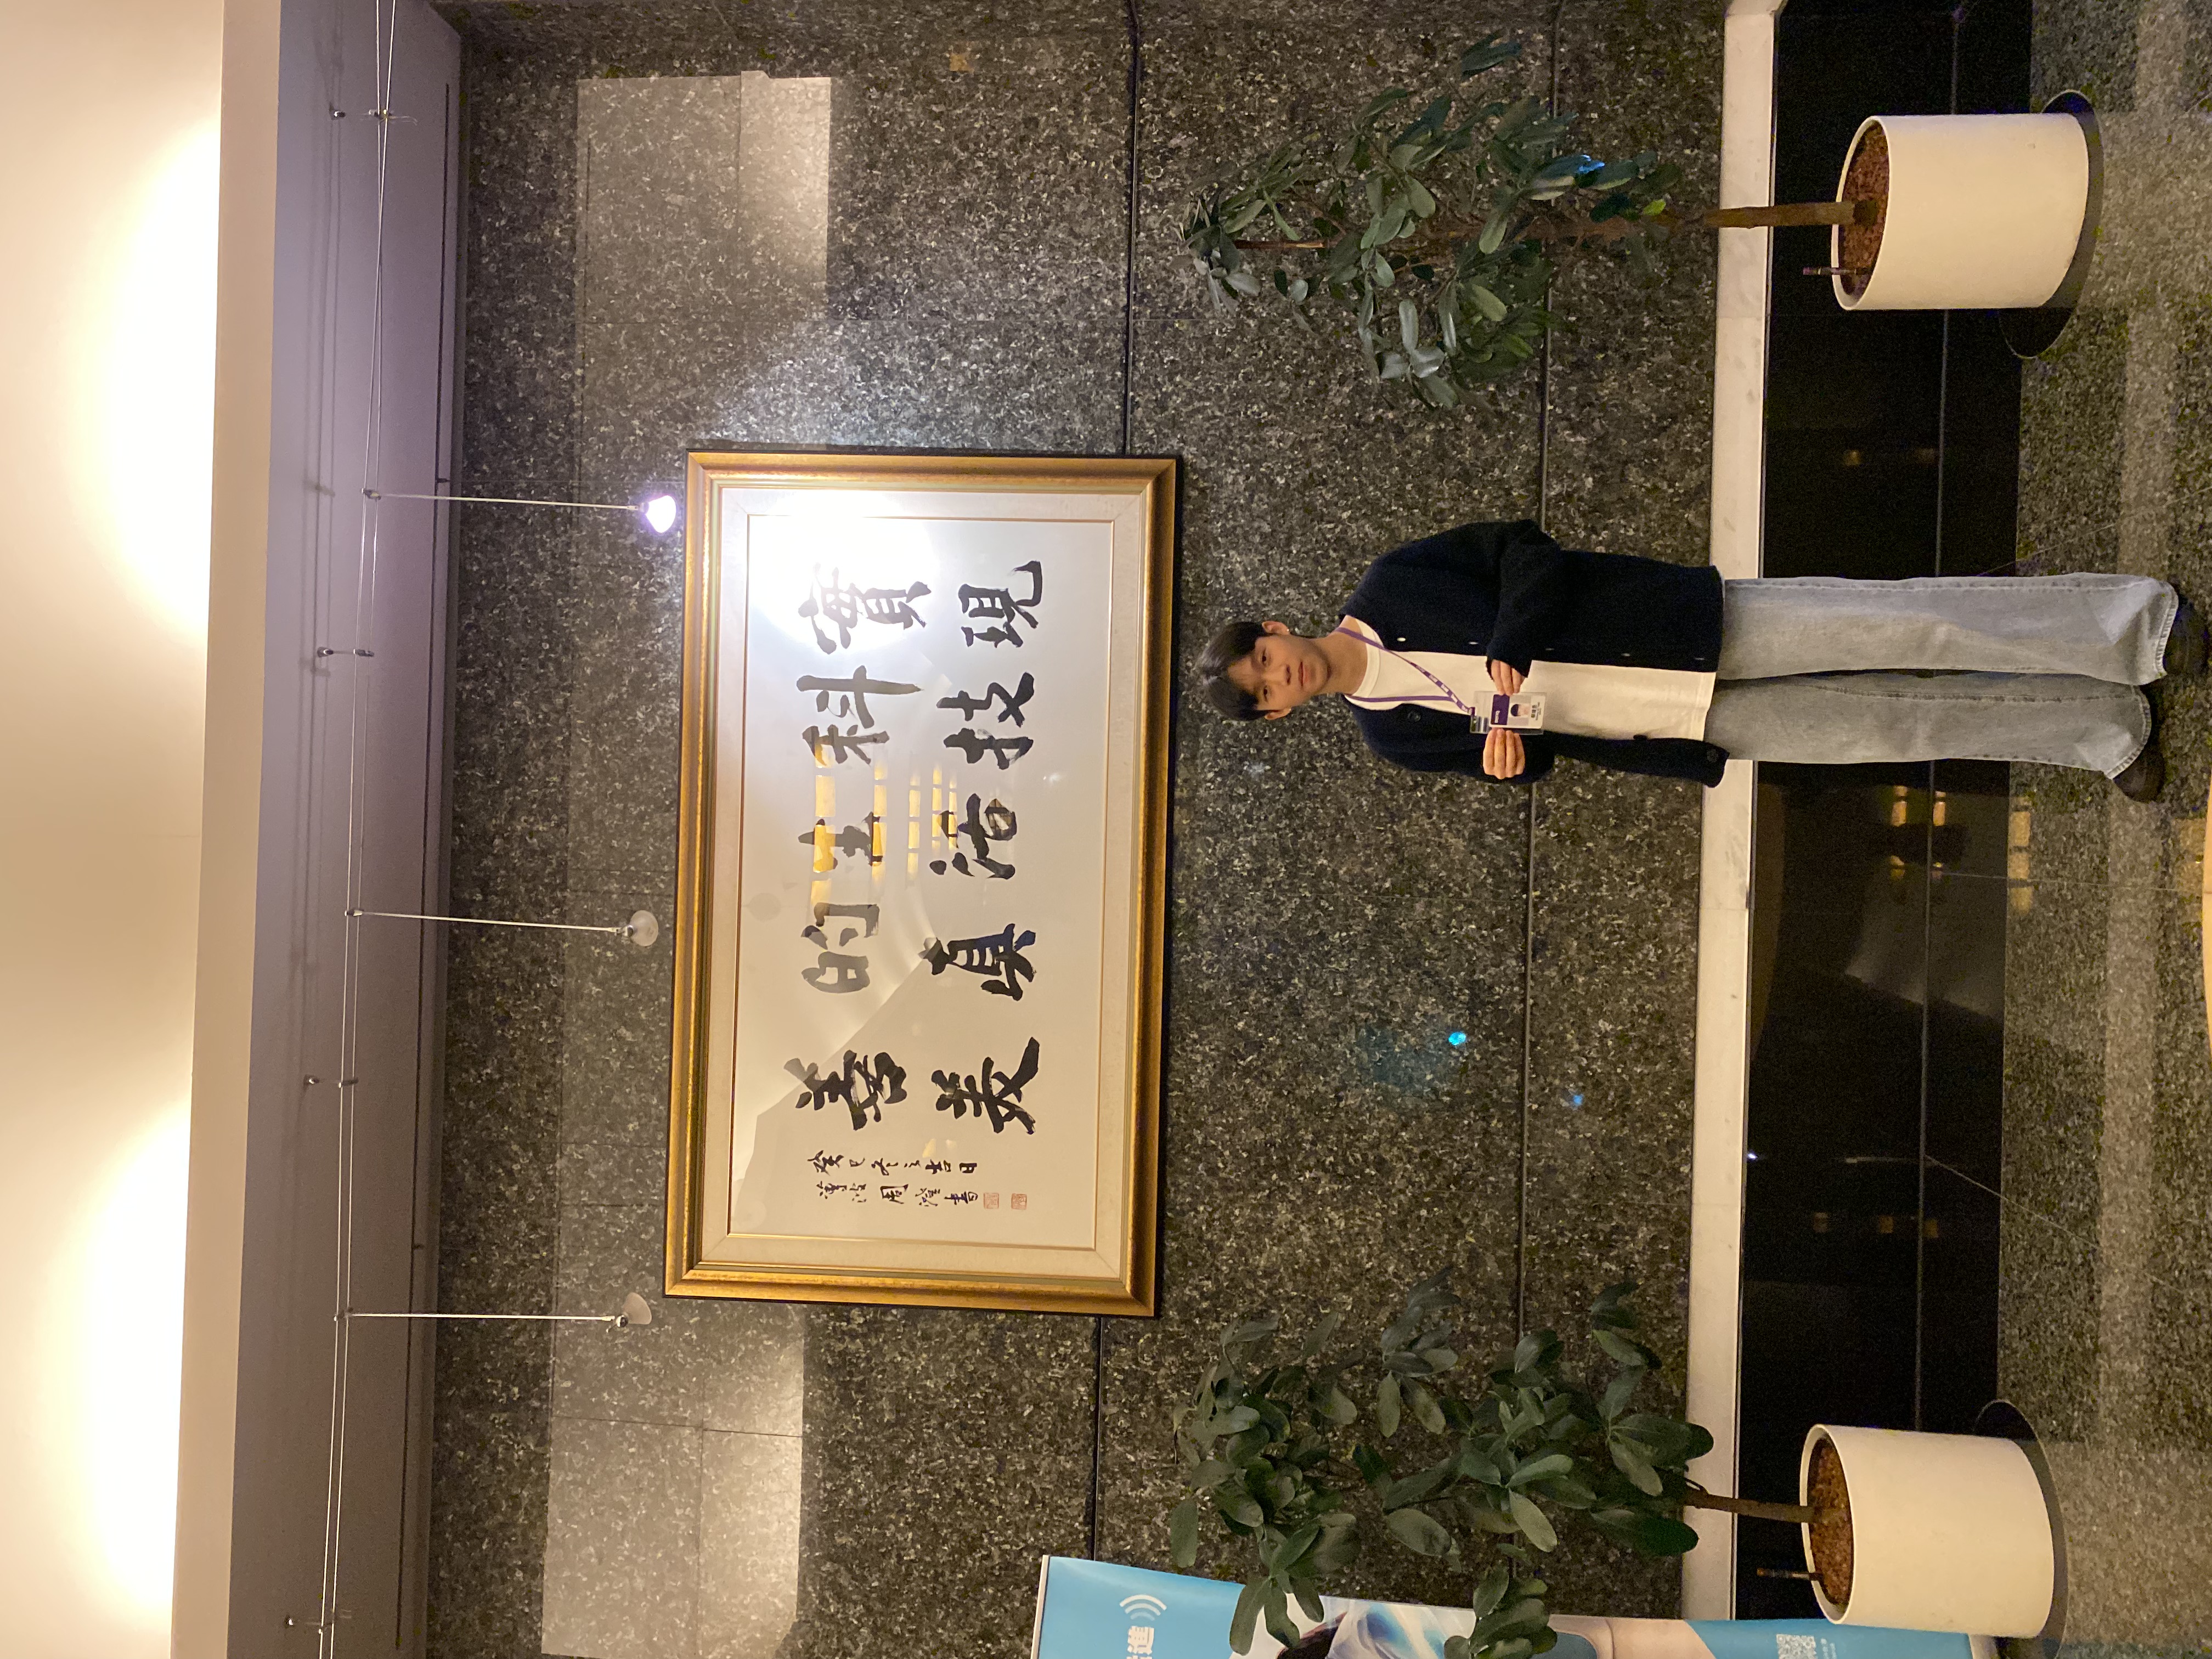 實現
科技
生活
的真
善美
癸巳冬之吉日
蓴波周澄書
進
BenQ